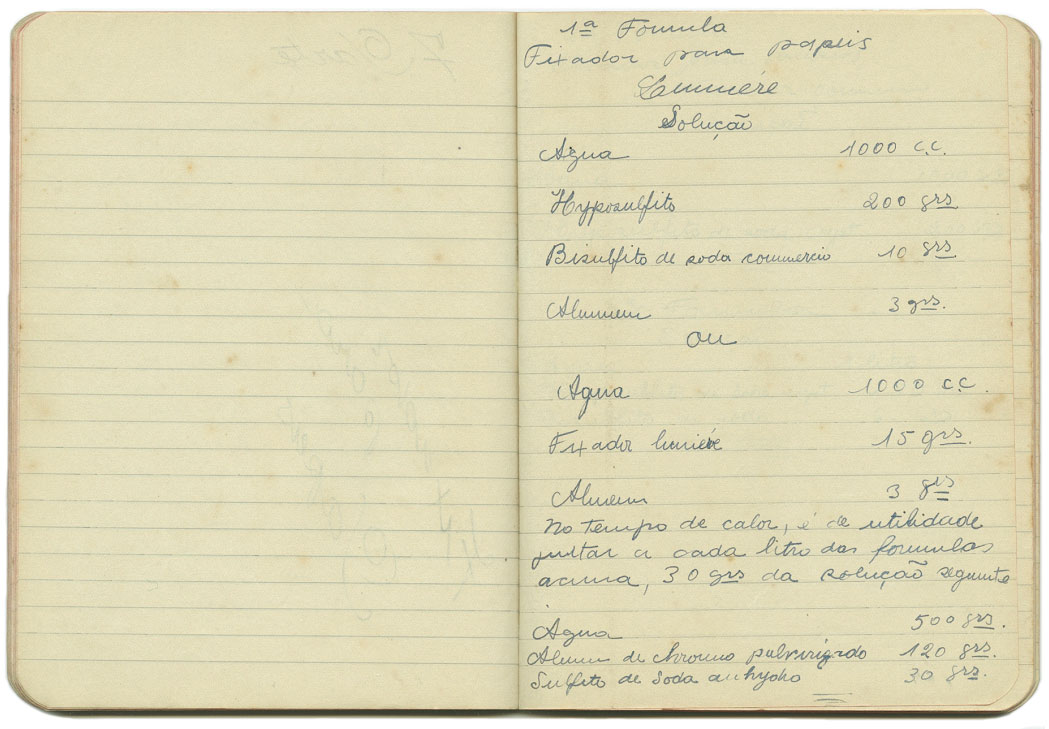 1ª Formula
Fixador para papeis
Lumiére
Solução
Agua 1000 c.c.
Hyposulfito 200 grs
Bisulfito de soda commercio 10 grs
Alumem 3 grs.
ou
Agua 1000 c.c.
Fixador lumiére 15 grs.
Alumem 3 grs
No tempo de calor, é de utilidade
juntar a cada litro das formulas
acima, 30 grs da solução seguinte
Agua 500 grs.
Alumem de chromo pulverizado 120 grs.
Sulfito de soda anhydro 30 grs.